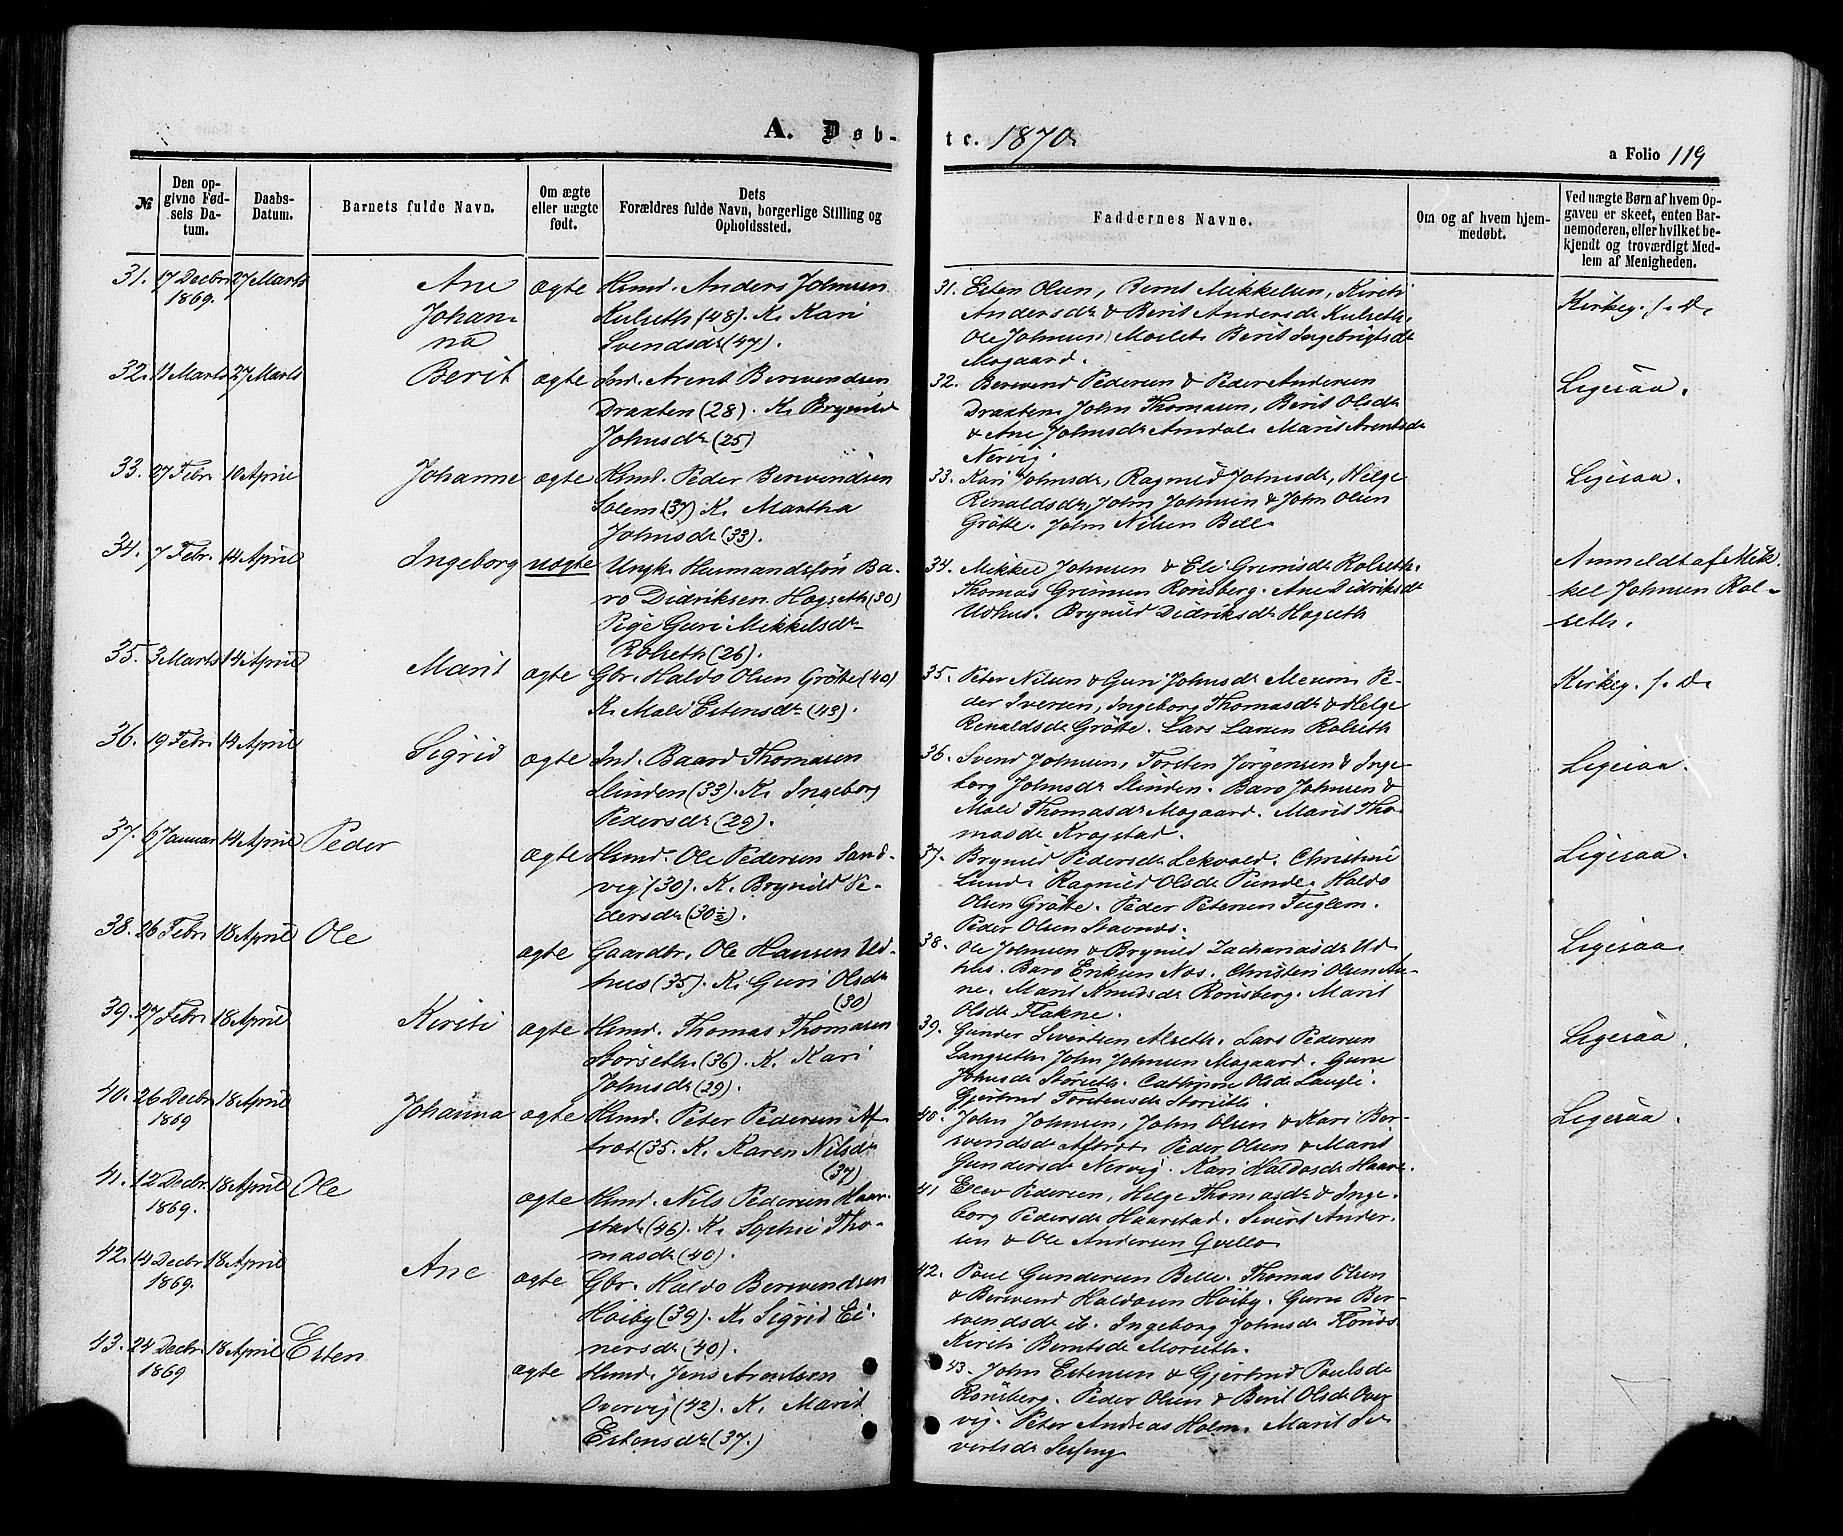 A. Døb-
te. 1870.
a Folio 119
№
Den op-
givne Fød-
sels Da-
tum.
Daabs-
Datum.
Barnets fulde Navn.
Om ægte
eller uægte
født.
Dets
Forældres fulde Navn, borgerlige Stilling og
Opholdssted.
Faddernes Navne.
Om og af hvem hjem-
medøbt.
Ved uægte Børn af hvem Op-
gaven er skeet, enten Bar-
nemoderen, eller hvilket be-
kjendt og troværdigt Med-
lem af Menigheden.
31. 17 Decbr 27 Marts Ane ægte Hsmd. Anders Johnsen
1869. Johan- Kulseth (48). K. Kari
na Svendsdr (47).
31. Esten Olsen, Bernt Mikkelsen, Kirsti
Andersdr & Berit Andersdr Kulseth.
Ole Johnsen Moslet. Berit Ingebrigtsdr
Mogaard.
Kirkeg. f. D.
32. 11 Marts 27 Marts Berit ægte Ind. Arent Bersvendsen
Draxten (28). K. Brynild
Johnsdr (25)
32. Bersvend Pedersen & Peder Andersen
Draxten. John Thomasen, Berit Olsdr
& Ane Johnsdr Amdal. Marit Arentsdr
Nervig.
Ligesaa.
33. 27 Febr. 10 April Johanne ægte Hsmd. Peder Bersvendsen
Solem (37) K. Martha
Johnsdr (33).
33. Kari Johnsdr, Ragnild Johnsdr, Helge
Rinaldsdr, John Johnsen & John Olsen
Grötte. John Nilsen Belle
Ligesaa.
34. 7 Febr. 14 April Ingeborg uægte Ungk. Husmandssøn Ba-
ro Didriksen Hogseth (30)
Pige Guri Mikkelsdr
Rolseth (26).
34. Mikkel Johnsen & Eli Grimsdr Rolseth.
Thomas Grimsen Rönsberg. Ane Didriksdr
Udhus. Brynild Didriksdr Hogseth
Anmeldt af Mik-
kel Johnsen Rol-
seth.
35. 3 Marts 14 April Marit ægte Gbr. Haldo Olsen Grötte (40)
K. Mali Estensdr (43).
35. Peter Nilsen & Guri Johnsdr Pe-
der Iversen, Ingeborg Thomasdr & Helge
Rinaldsdr Grötte. Lars Larsen Rolseth
Kirkeg. f. D.
36. 19 Febr. 14 April Sigrid ægte Ind. Baard Thomasen
Slinden (33). K. Ingeborg
Pedersdr (29).
36. Svend Johnsen, Torsten Jörgensen & Inge-
borg Johnsdr Slinden. Baro Johnsen &
Mali Thomasdr Mogaard. Marit Tho-
masdr Krogstad.
Ligesaa.
37. 6 Januar 14 April Peder ægte Hsmd. Ole Pedersen Sand-
vig (30). K. Brynild Pe-
dersdr (30½).
37. Brynild Pedersdr Lekvold. Christine
Lund. Ragnild Olsdr Punde. Haldo
Olsen Grötte. Peder Petersen Fuglem.
Peder Olsen Stavnes.
Ligesaa.
38. 26 Febr. 18 April Ole ægte Gaardbr. Ole Hansen Ud-
hus (35). K. Guri Olsdr
(30)
38. Ole Johnsen & Brynild Zachariasdr Ud-
hus. Baro Eriksen Nos. Christen Olsen An-
ne. Marit Knudsdr Rönsberg. Marit
Olsdr Flakne.
Ligesaa.
39. 27 Febr. 18 April Kirsti ægte Hsmd. Thomas Thomasen
Störseth (36). K. Kari
Johnsdr (29).
39. Gunder Sivertsen Alseth. Lars Pedersen
Langseth. John Johnsen Mogaard. Guru
Johnsdr Störseth. Cathrine Olsdr Langli.
Gjertrud Torstensdr Störseth.
Ligesaa.
40. 26 Decbr 18 April Johanna ægte Hsmd. Peter Pedersen Af-
1869 trot (35. K. Karen Nilsdr
(37)
40. John Johnsen, John Olsen & Kari Ber-
svendsdr Aftrot. Peder Olsen & Marit
Gundersdr Nervig. Kari Haldosdr Haare.
Ligesaa.
41. 12 Decbr. 18 April Ole ægte Hsmd. Nils Pedersen Haar-
1869. stad (46). K. Sophie Tho-
masdr (40).
41 Elev Pedersen, Helge Thomasdr & Inge-
borg Pedersdr Haarstad. Sivert Ander-
sen & Ole Andersen Qvello
42. 14 Decbr 18 April Ane ægte Gbr. Haldo Bersvendsen
1869. Höiby (39). K. Sigrid Ei-
nersdr (40).
42. Paul Gundersen Belle. Thomas Olsen
& Bersvend Haldosen Höiby. Guru Ber-
svendsdr ib. Ingeborg Johnsdr Flönes
Kirsti Berntsdr Morseth.
43. 24 Decbr 18 April Esten ægte Hsmd. Jens Arentsen
1869 Overvig (42). K. Marit
Estensdr (37.)
43. John Estensen & Gjertrud Paulsdr
Rönsberg. Peder Olsen & Berit Olsdr Over-
vig. Peter Andreas Holm. Marit Si-
vertsdr